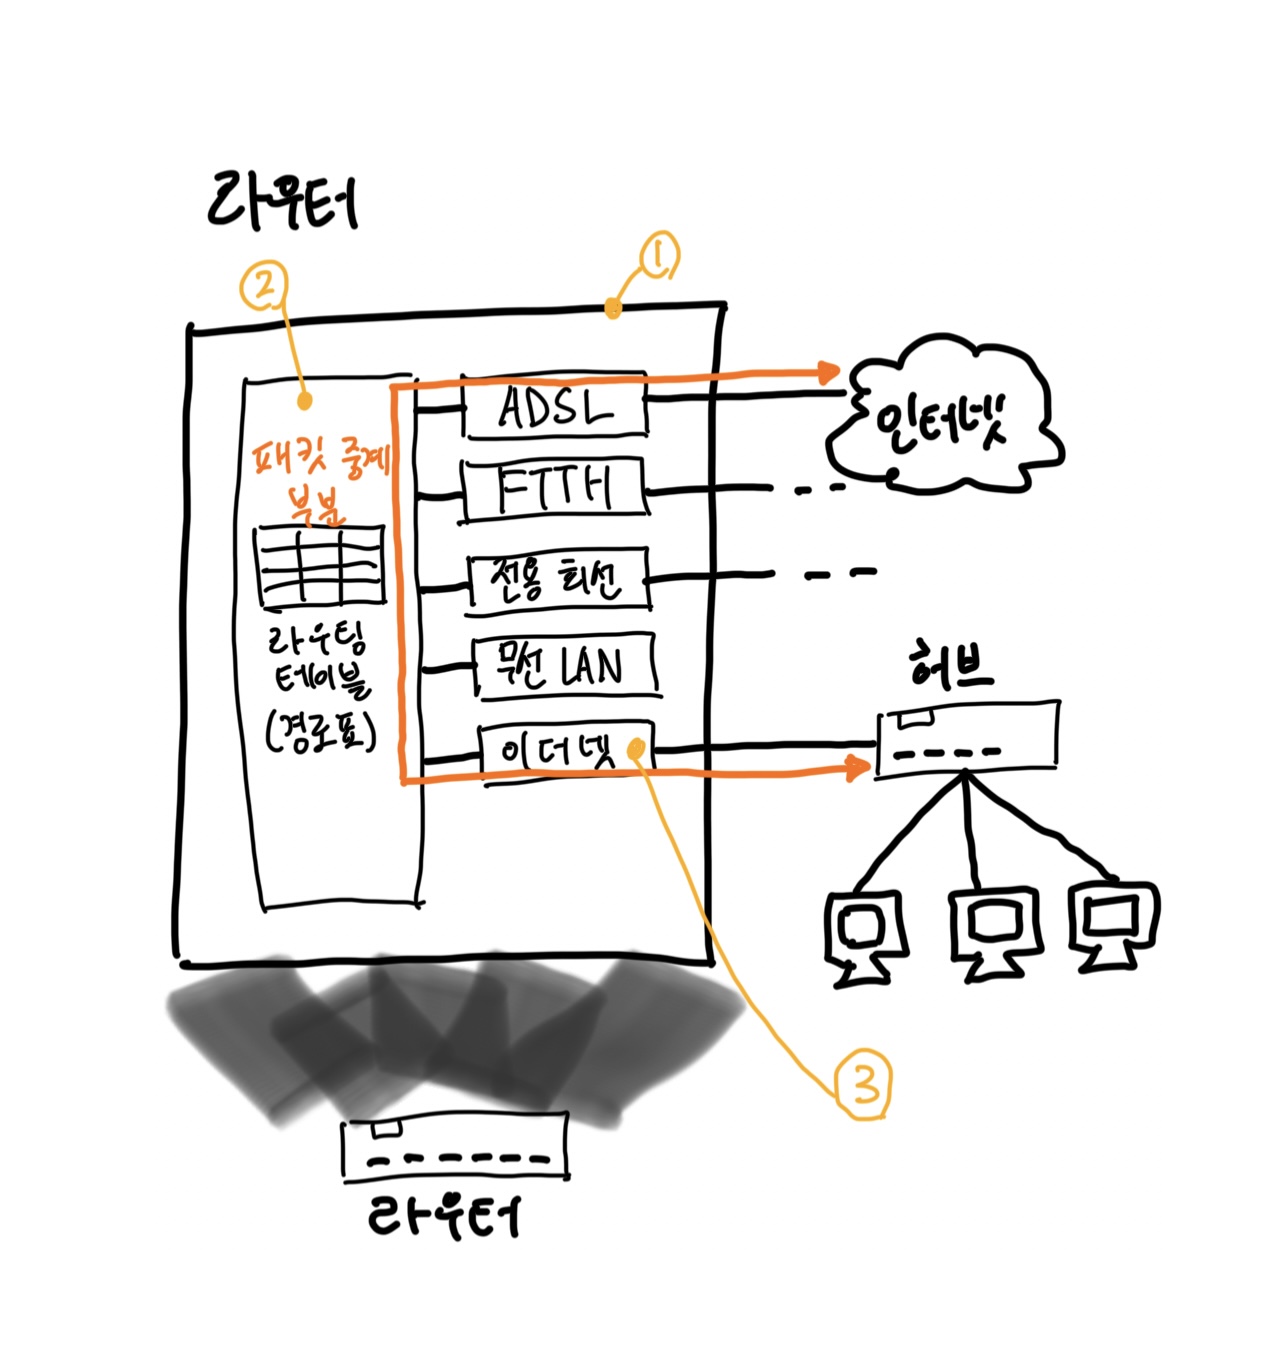 라우터
①
②
패킷 중계
부분
라우팅
테이블
(경로표)
ADSL
FTTH
전용 회선
무선 LAN
이더넷
인터넷
허브
③
라우터